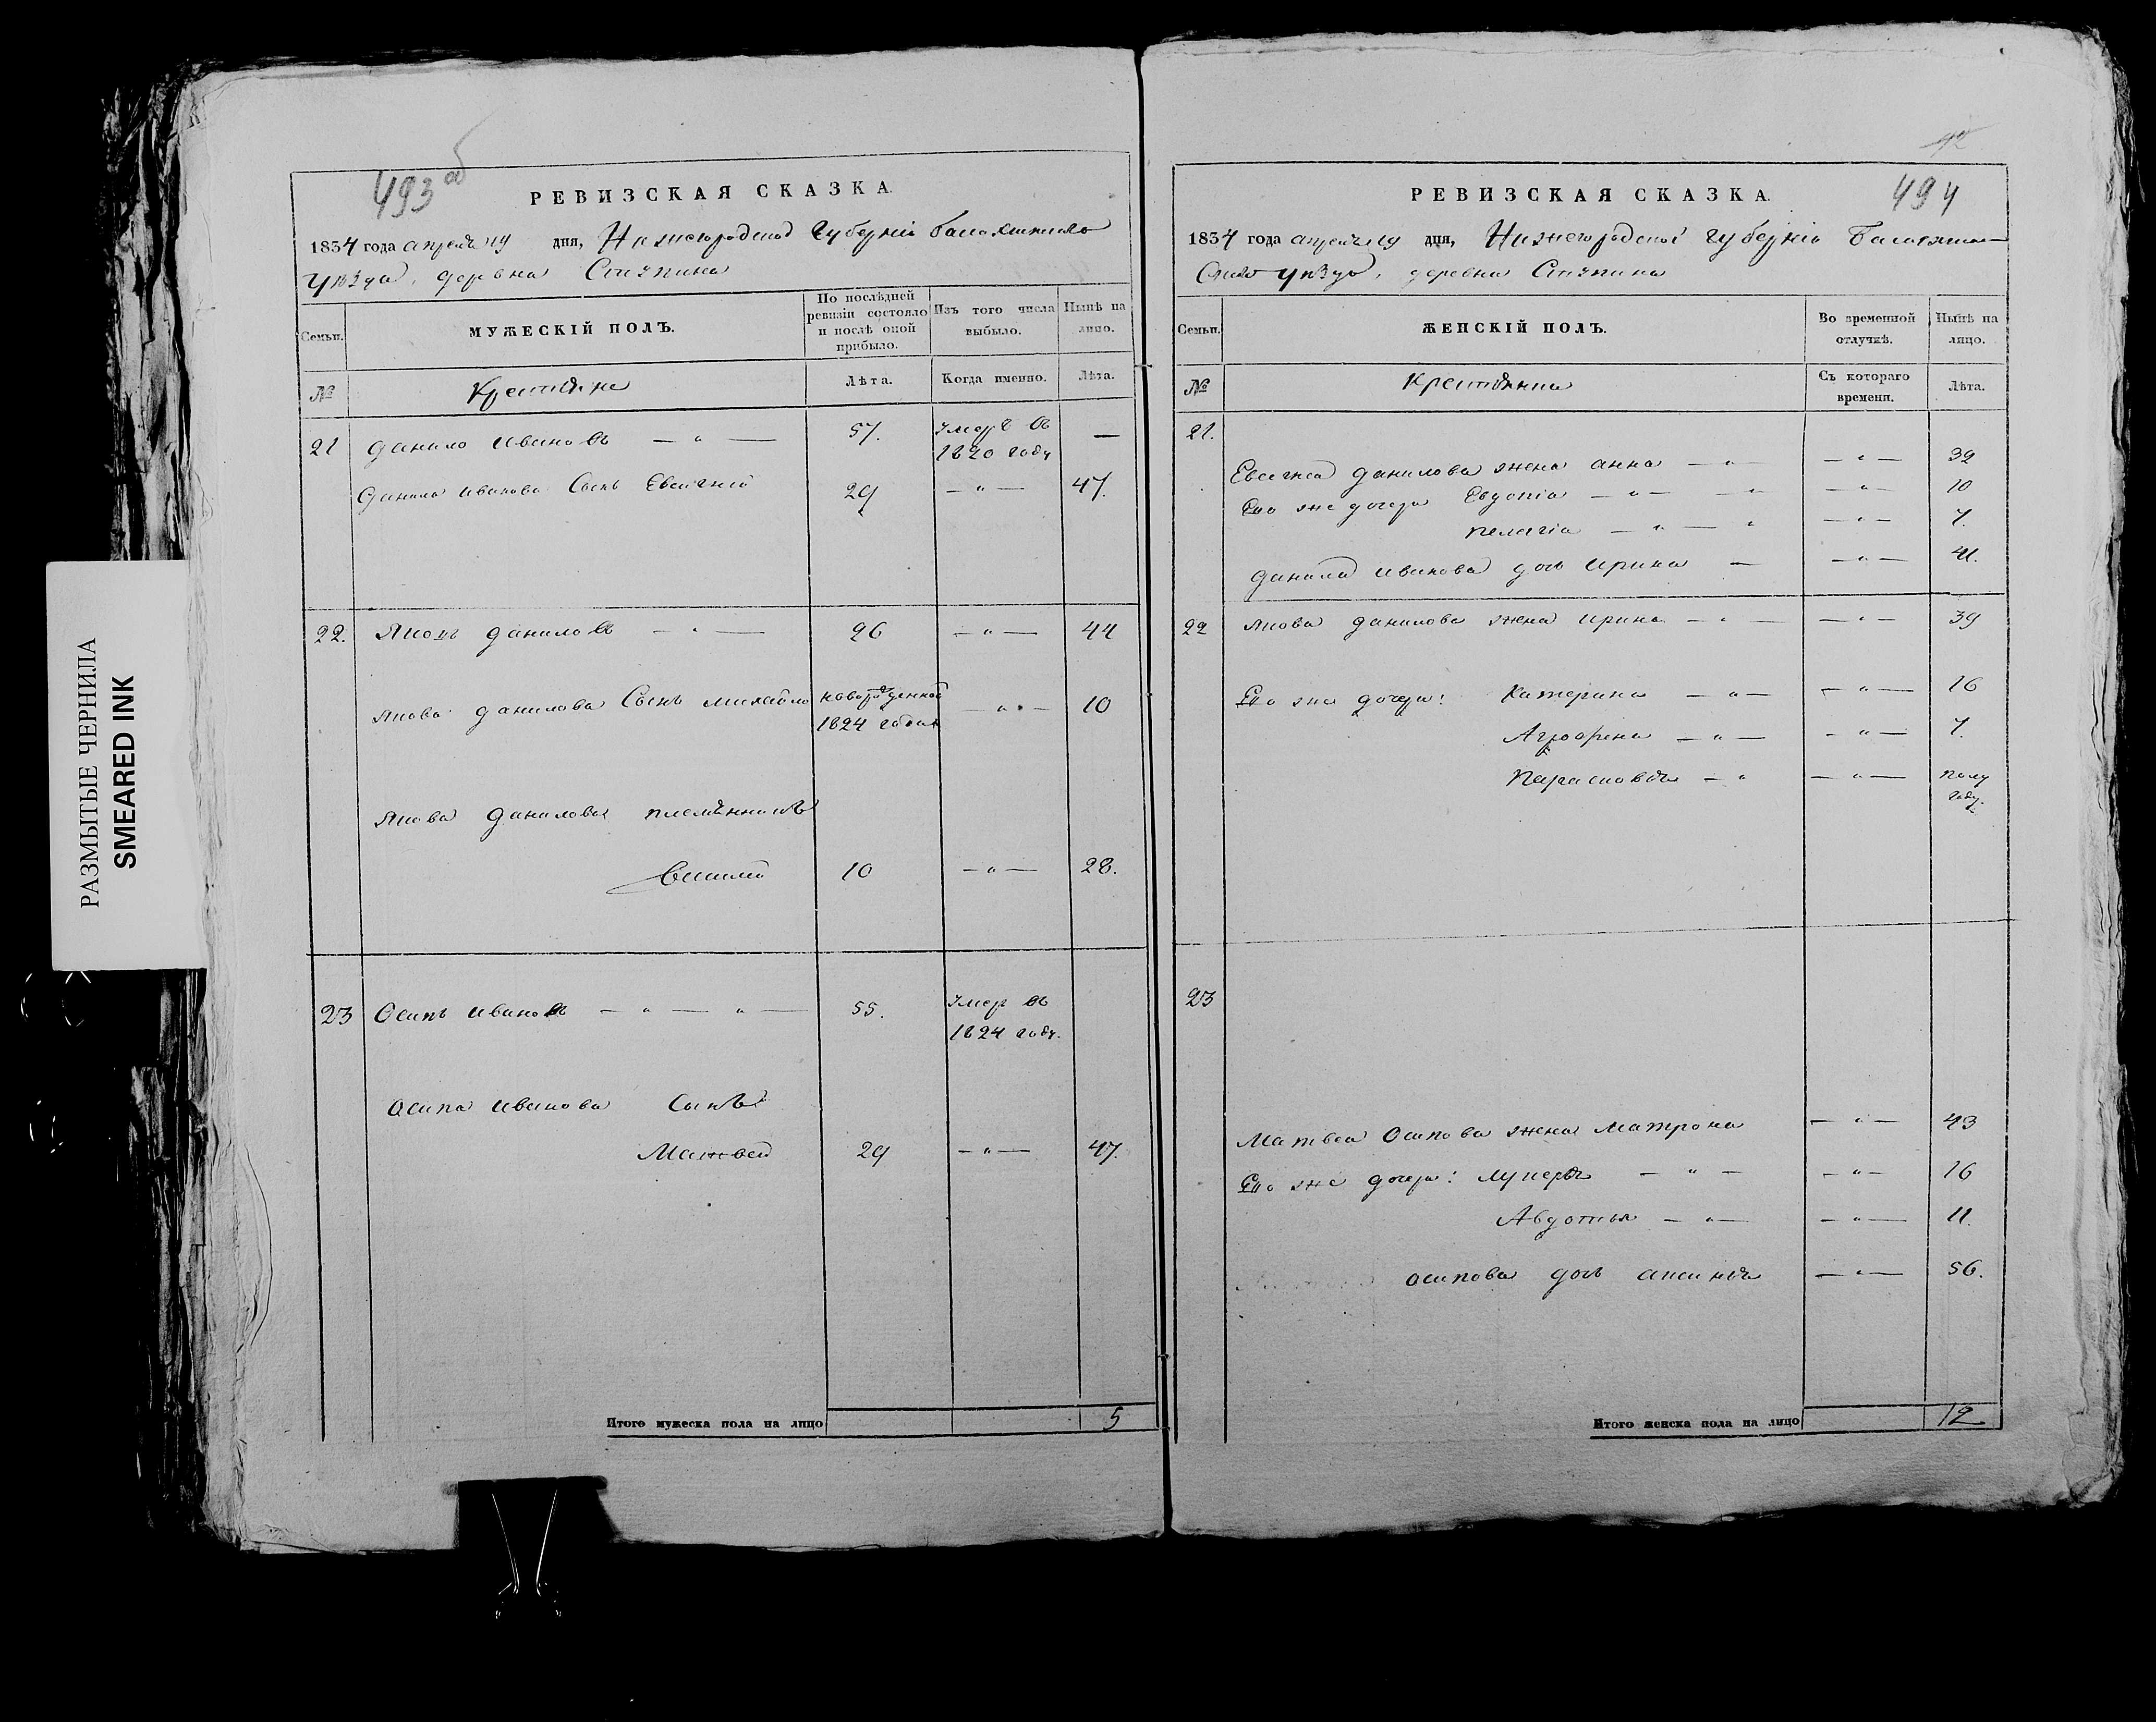 РАЗМЫТЫЕ ЧЕРНИЛА
SMEARED INK
493 об
РЕВИЗСКАЯ СКАЗКА.
1834 года апреля 19 дня, Нижегородской Губерніи Балахнинскаго
Уѣзда, деревни
Семьи. МУЖЕСКІЙ ПОЛЪ. По послѣдней ревизіи состояло и послѣ оной прибыло. Изъ того числа выбыло. Нынѣ на лицо.
№ Крестьяне Лѣта. Когда именно. Лѣта.
21 Данило Ивановъ — „ — 57. Умеръ въ —
1820 году
Данила Иванова Сынъ Евсигней 29 — „ — 47.
22. Яковъ Даниловъ — „ — 26 — „ — 44
Якова Данилова Сынъ Михайло новорожденной — „ — 10
1824 года
Якова Данилова племянникъ
Василей 10 — „ — 28.
23 Осипъ Ивановъ — „ — „ — 55. Умеръ въ
1824 году.
Осипа Иванова Сынъ
Матвей 29 — „ — 47.
Итого мужеска пола на лицо 5
92
494
РЕВИЗСКАЯ СКАЗКА.
1834 года апреля 19 дня, Нижегородской Губерніи Балахнин-
скаго уѣзда, деревни
Семьи. ЖЕНСКІЙ ПОЛЪ. Во временной отлучкѣ. Нынѣ на лицо.
№ Крестьянки Съ котораго времени. Лѣта.
21.
Евсигнея Данилова жена Анна — „ — — „ — 32
Его же дочери Евдокіа — „ — — „ — 10
Пелагіа — „ — „ — „ — 7.
Данила Иванова дочь Ирина — — „ — 41.
22 Якова Данилова жена Ирина — „ — — „ — 39
Его же дочери: Катерина — „ — — „ — 16
Аграфена — „ — — „ — 7.
Парасковья — „ — „ — полу
году.
23
Матвея Осипова жена Матрона — „ — 43
Его же дочери: Лукерья — „ — — „ — 16
Авдотья — „ — — „ — 11.
Осипова дочь Аксинья — „ — 56.
Итого женска пола на лицо 12